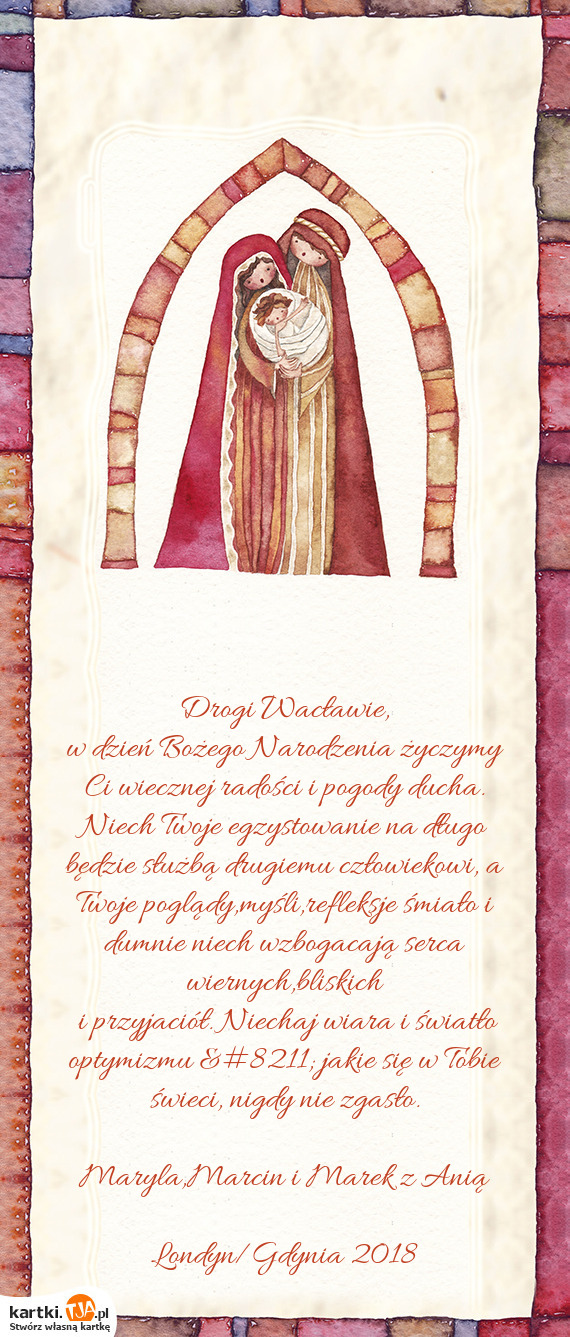 Drogi Wacławie,
w dzień Bożego Narodzenia życzymy
Ci wiecznej radości i pogody ducha.
Niech Twoje egzystowanie na długo
będzie służbą drugiemu człowiekowi, a
Twoje poglądy,myśli,refleksje śmiało i
dumnie niech wzbogacają serca
wiernych,bliskich
i przyjaciół. Niechaj wiara i światło
optymizmu &#8211; jakie się w Tobie
świeci, nigdy nie zgasło.
Maryla,Marcin i Marek z Anią
Londyn/ Gdynia 2018
kartki.TJA.pl
Stwórz własną kartkę